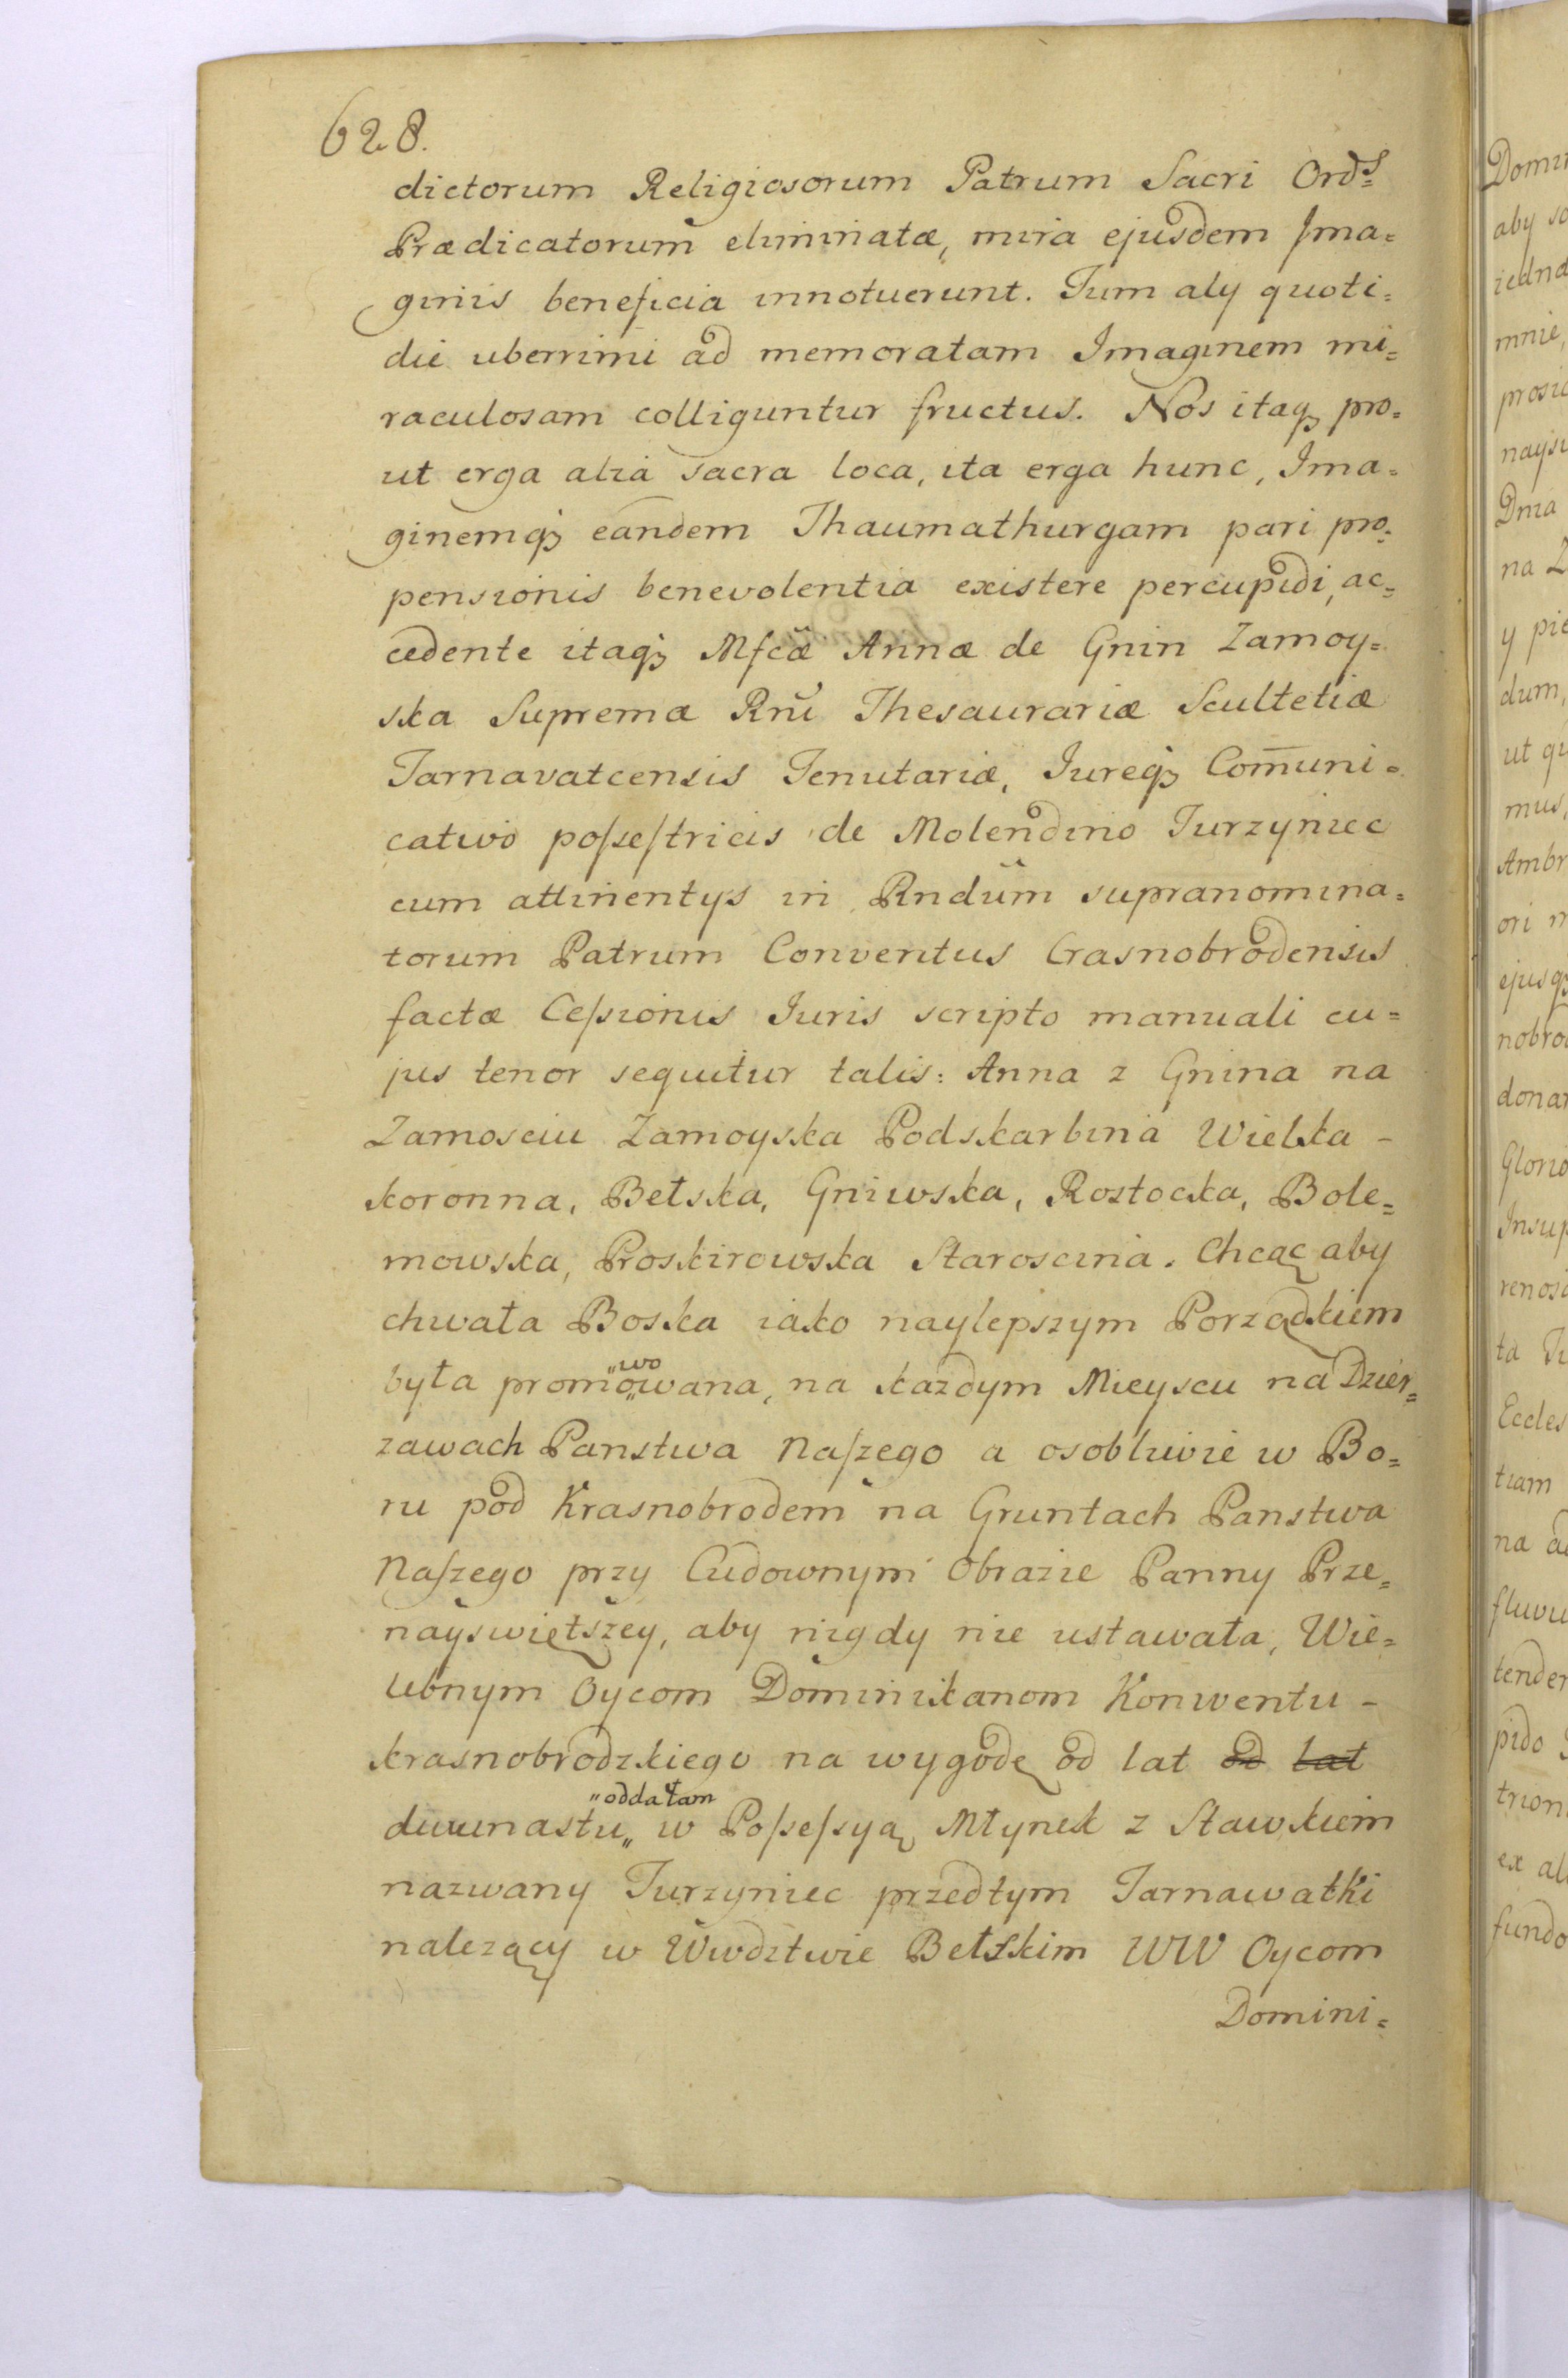 628.
dictorum Religiosorum Patrum Sacri Ordˢ
Prædicatorum eliminatæ, mira ejusdem Ima=
ginis beneficia innotuerunt. Tum aly quoti=
die uberrimi ad memoratam Imaginem mi=
raculosam colliguntur fructus. Nos itaqꝫ pro=
ut erga alia sacra loca, ita erga hunc, Ima=
ginemqꝫ eandem Thaumathurgam pari pro=
pensionis benevolentia existere percupidi, ac=
cedente itaqꝫ Mfcæ Annæ de Gnin Zamoy=
ska Supremæ Rni Thesaurariæ Scultetiæ
Tarnavatcensis Tenutariæ, Jureqꝫ Com̄uni=
cativo poſseſtricis de Molendino Turzyniec
cum attinentys in Rndum supranomina=
torum Patrum Conventus Crasnobrodensis
factæ Ceſsionis Juris scripto manuali cu=
jus tenor sequitur talis: Anna z Gnina na
Zamosciu Zamoyska Podskarbina Wielka -
koronna, Bełska, Gniwska, Rostocka, Bole=
mowska, Proskirowska Staroscina. Chcąc aby
chwała Boska iako naylepszym Porządkiem
"wo
była promo„wana, na każdym Mieyscu na Dzier=
zawach Panstwa Naſzego a osobliwie w Bo=
ru pod Krasnobrodem na Gruntach Panstwa
Naſzego przy Cudownym Obrazie Panny Prze=
nayswiętszey, aby nigdy nie ustawała, Wie=
lebnym Oycom Dominikanom Konwentu -
krasnobrodzkiego na wygodę od lat od lat
"oddałam
dwunastu„ w Poſseſsyą Młynek z Stawkiem
nazwany Turzyniec przedtym Tarnawatki
nalezący w Wwdztwie Bełskim WW Oycom
Domini=
Domin
aby
iedna
mnie,
nays
Dnia
na Z
y pie
dum,
ut qu
mus,
Ambr
ori
ejusqꝫ
nobro
donar
Glorio
Insup
renos
ta
Eccles
tiam
na a
fluvi
tender
pido
trion
ex al
fundo